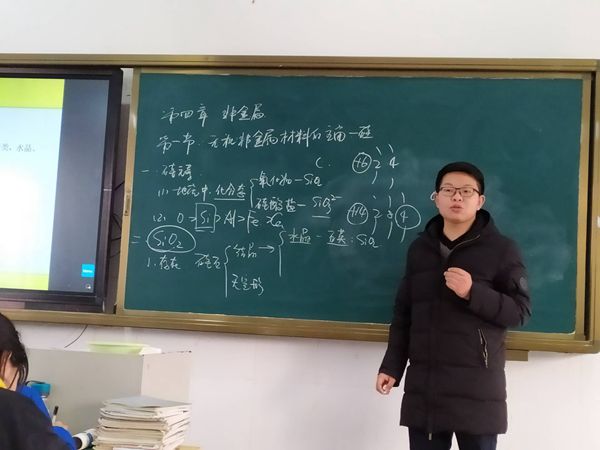 类、水晶、
第四章 非金属
第一节 无机非金属材料的主角—硅
一.硅元素 C. +6 2 4
(1) 地壳中.化合态 氧化物—SiO₂
硅酸盐—SiO₃²⁻ +14 2 8 4
(2). O>Si>Al>Fe>Ca
二 SiO₂ 水晶—石英:SiO₂
1.存在 硅石 结晶→
无定形